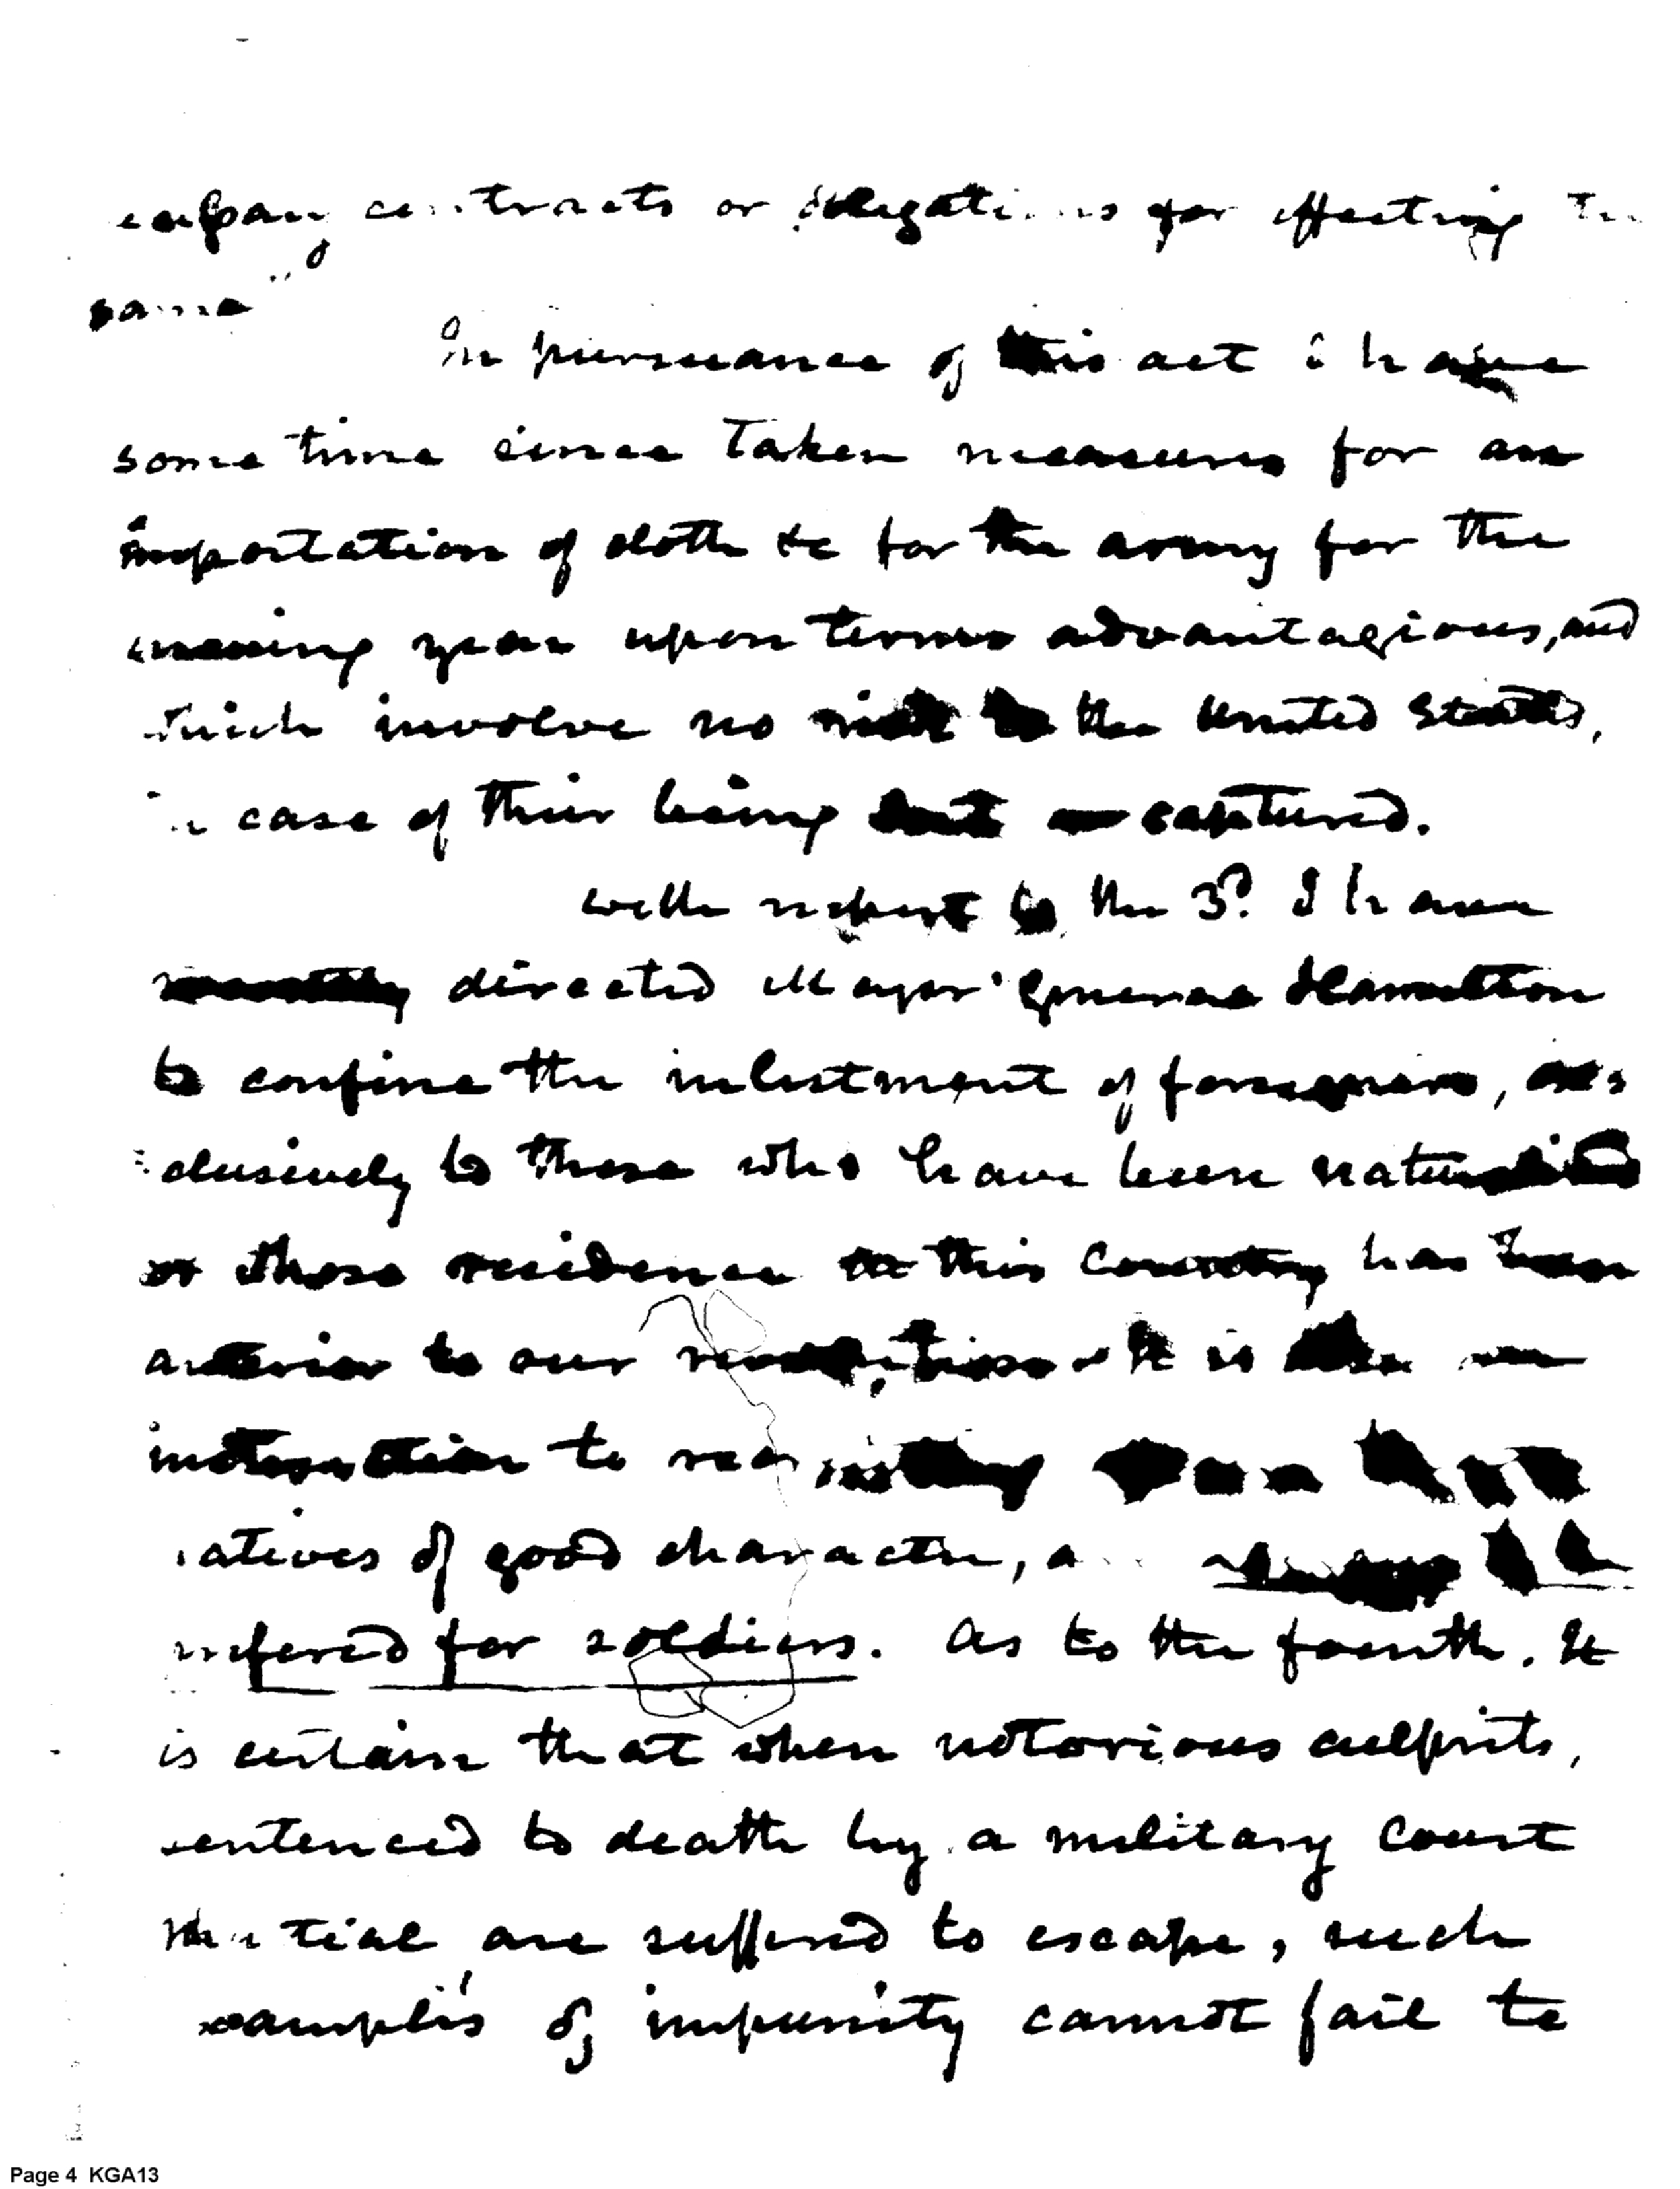 company contracts or obligations for effecting the
same"
In pursuance of this act I have
some time since taken measures for an
importation of cloth &c for the army for the
ensuing year upon terms advantagious, and
which involve no risk to the United States,
in case of their being lost or captured.
with respect to the 3d. I have
recently directed Major General Hamilton
to confine the inlistment of foreigners, ex=
=clusively to those who have been naturalized
or whose residence in this Country has been
anterior to our revolution. It is also an
instruction to
natives of good character, and
prefered for soldiers. As to the fourth. It
is certain that when notorious culprits,
sentenced to death by a military Court
Martial are suffered to escape, such
examples of impunity cannot fail to
Page 4 KGA13